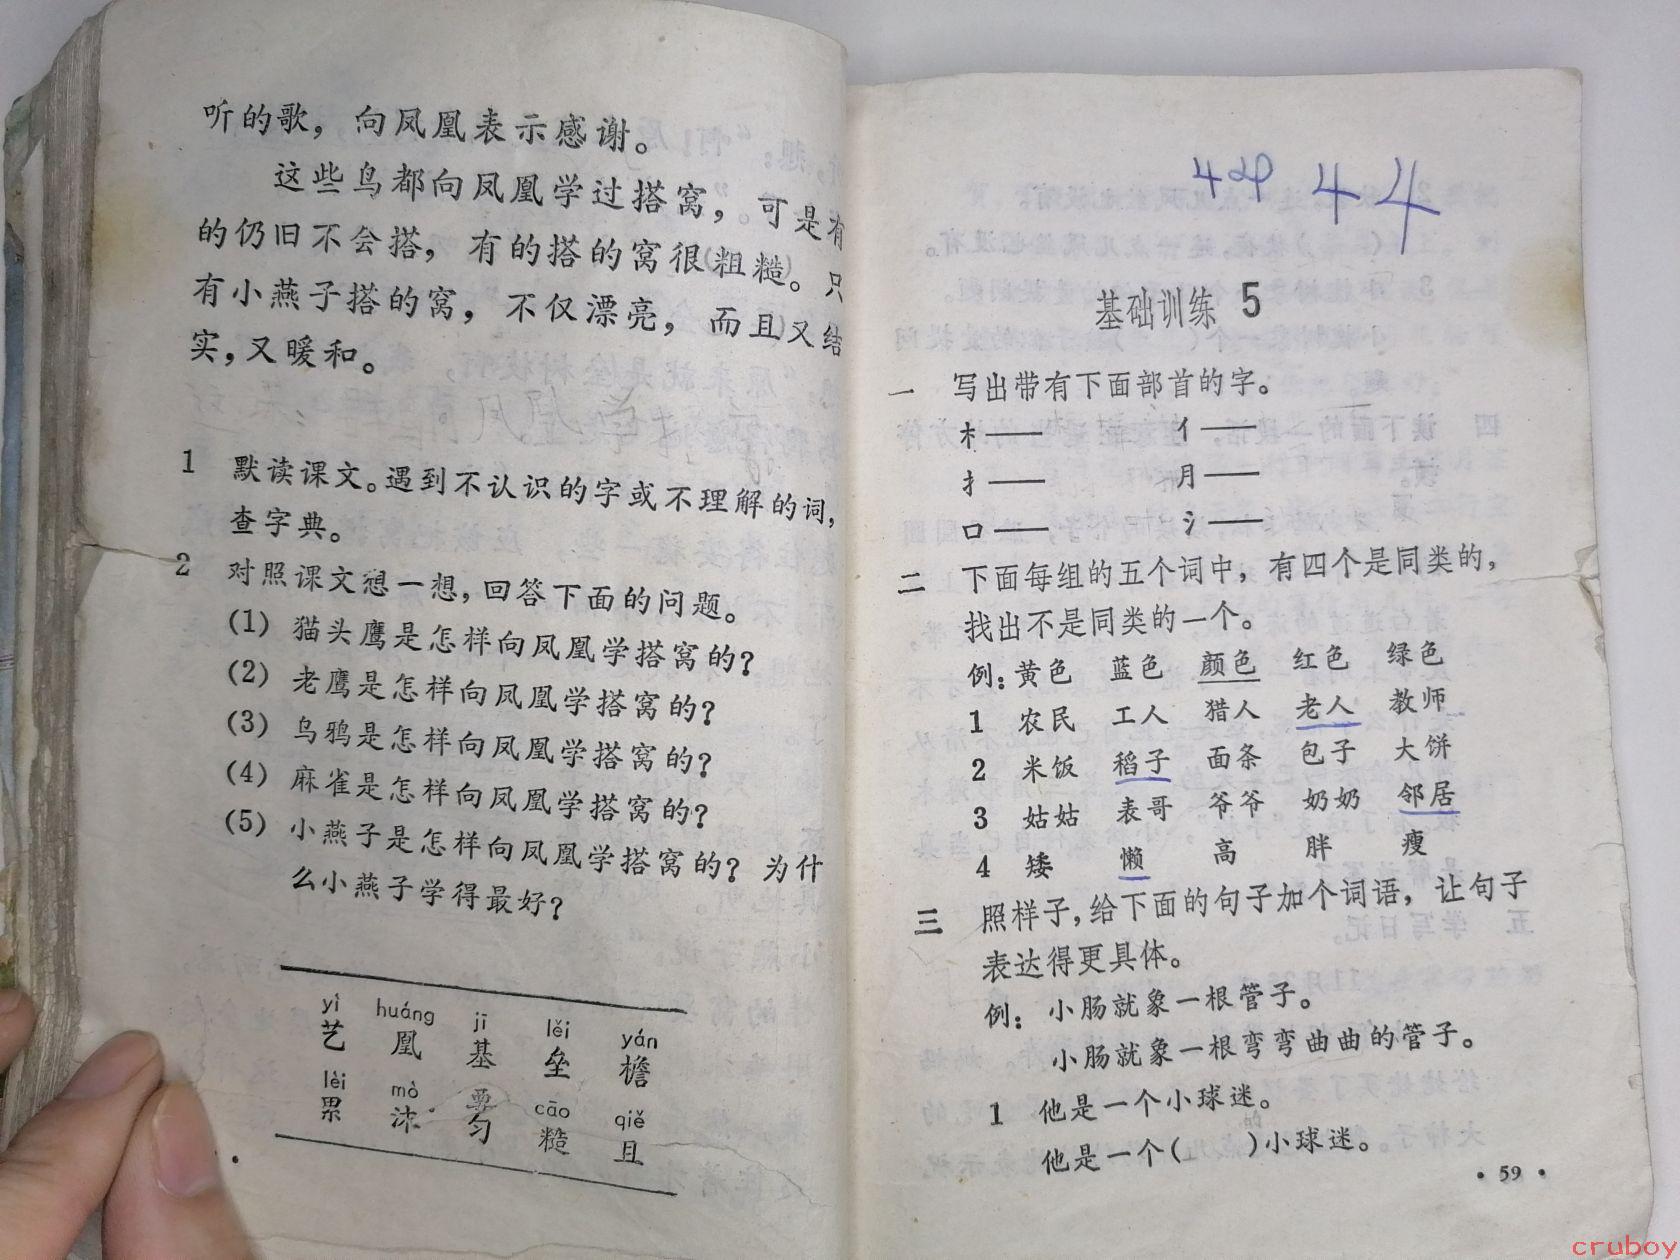 听的歌，向凤凰表示感谢。
这些鸟都向凤凰学过搭窝，可是有
的仍旧不会搭，有的搭的窝很粗糙。只
有小燕子搭的窝，不仅漂亮，而且又结
实，又暖和。
1 默读课文。遇到不认识的字或不理解的词，
查字典。
2 对照课文想一想，回答下面的问题。
(1) 猫头鹰是怎样向凤凰学搭窝的？
(2) 老鹰是怎样向凤凰学搭窝的？
(3) 乌鸦是怎样向凤凰学搭窝的？
(4) 麻雀是怎样向凤凰学搭窝的？
(5) 小燕子是怎样向凤凰学搭窝的？为什
么小燕子学得最好？
yì huáng jī lěi yán
艺 凰 基 垒 檐
lèi mò cāo qiě
累 沫 匀 糙 且
44
基础训练 5
一 写出带有下面部首的字。
木—— 亻——
扌—— 月——
口—— 氵——
二 下面每组的五个词中，有四个是同类的，
找出不是同类的一个。
例：黄色 蓝色 颜色 红色 绿色
1 农民 工人 猎人 老人 教师
2 米饭 稻子 面条 包子 大饼
3 姑姑 表哥 爷爷 奶奶 邻居
4 矮 懒 高 胖 瘦
三 照样子，给下面的句子加个词语，让句子
表达得更具体。
例：小肠就象一根管子。
小肠就象一根弯弯曲曲的管子。
1 他是一个小球迷。
他是一个( )小球迷。
·59·
cruboy